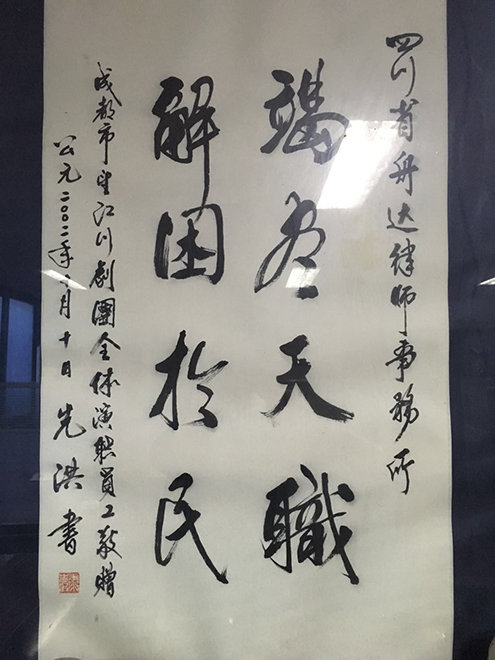 四川省舟达律师事务所
竭尽天職
解困於民
成都市望江川劇團全体演职員工敬贈
公元二〇〇二年六月十日 先洪書